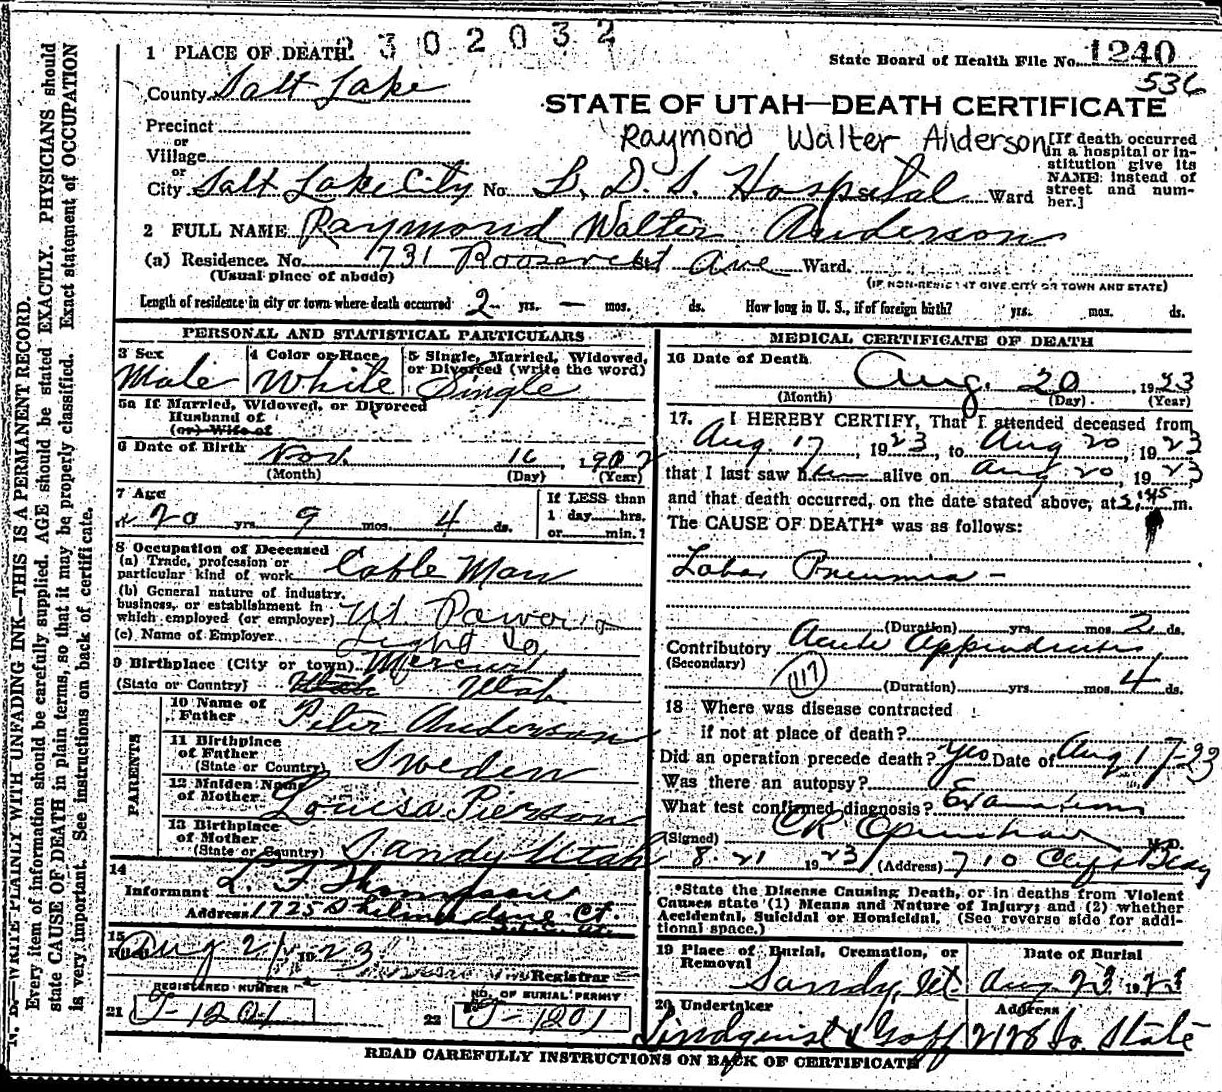 2302032
1 PLACE OF DEATH.
State Board of Health File No. 1240
536
County Salt Lake
STATE OF UTAH—DEATH CERTIFICATE
Precinct
or
Village
or
Raymond Walter Anderson
[If death occurred in a hospital or institution give its NAME instead of street and number.]
City Salt Lake City No. L. D. S. Hospital Ward
2 FULL NAME Raymond Walter Anderson
(a) Residence. No. 1731 Roosevelt Ave Ward.
(Usual place of abode)
(IF NON-RESIDENT GIVE CITY OR TOWN AND STATE)
Length of residence in city or town where death occurred 2 yrs. — mos. ds. How long in U. S., if of foreign birth? yrs. mos. ds.
PERSONAL AND STATISTICAL PARTICULARS
3 Sex
Male
4 Color or Race
White
5 Single, Married, Widowed,
or Divorced (write the word)
Single
5a If Married, Widowed, or Divorced
Husband of
(or) Wife of
6 Date of Birth Nov. 16, 1902
(Month) (Day) (Year)
7 Age
20 yrs. 9 mos. 4 ds.
If LESS than
1 day hrs.
or min.?
8 Occupation of Deceased
(a) Trade, profession or
particular kind of work Cable Man
(b) General nature of industry,
business, or establishment in
which employed (or employer) Ut. Power &
(c) Name of Employer Light Co
9 Birthplace (City or town) Mercur,
(State or Country) Utah
PARENTS
10 Name of
Father Peter Anderson
11 Birthplace
of Father
(State or Country) Sweden
12 Maiden Name
of Mother Louisa Pierson
13 Birthplace
of Mother
(State or Country) Sandy Utah
14
Informant L. F. Thompson
Address 1725
15
Filed Aug 21, 1923
Registrar
REGISTERED NUMBER
21 J-1201
NO. OF BURIAL PERMIT
22 J-1201
MEDICAL CERTIFICATE OF DEATH
16 Date of Death
Aug. 20, 1923
(Month) (Day) (Year)
17. I HEREBY CERTIFY, That I attended deceased from
Aug 17, 1923, to Aug 20, 1923
that I last saw him alive on Aug 20, 1923
and that death occurred, on the date stated above, at 2:45 m.
The CAUSE OF DEATH* was as follows:
Lobar Pneumia -
(Duration) yrs. mos. 2 ds.
Contributory Acute Appendicitis
(Secondary)
117
(Duration) yrs. mos. 4 ds.
18 Where was disease contracted
if not at place of death?
Did an operation precede death? Yes Date of Aug 17-23
Was there an autopsy?
What test confirmed diagnosis? Examinations
(Signed) CR Openshaw M.D.
8-21 1923 (Address) 710 Cliff Bldg
*State the Disease Causing Death, or in deaths from Violent
Causes state (1) Means and Nature of Injury; and (2) whether
Accidental, Suicidal or Homicidal. (See reverse side for addi-
tional space.)
19 Place of Burial, Cremation, or
Removal
Sandy, Ut.
Date of Burial
Aug 23 1923
20 Undertaker
Lindquist & Goff
Address
2128 So. State
READ CAREFULLY INSTRUCTIONS ON BACK OF CERTIFICATE
N. B.—WRITE PLAINLY WITH UNFADING INK—THIS IS A PERMANENT RECORD.
Every item of information should be carefully supplied. AGE should be stated EXACTLY. PHYSICIANS should
state CAUSE OF DEATH in plain terms, so that it may be properly classified. Exact statement of OCCUPATION
is very important. See instructions on back of certificate.